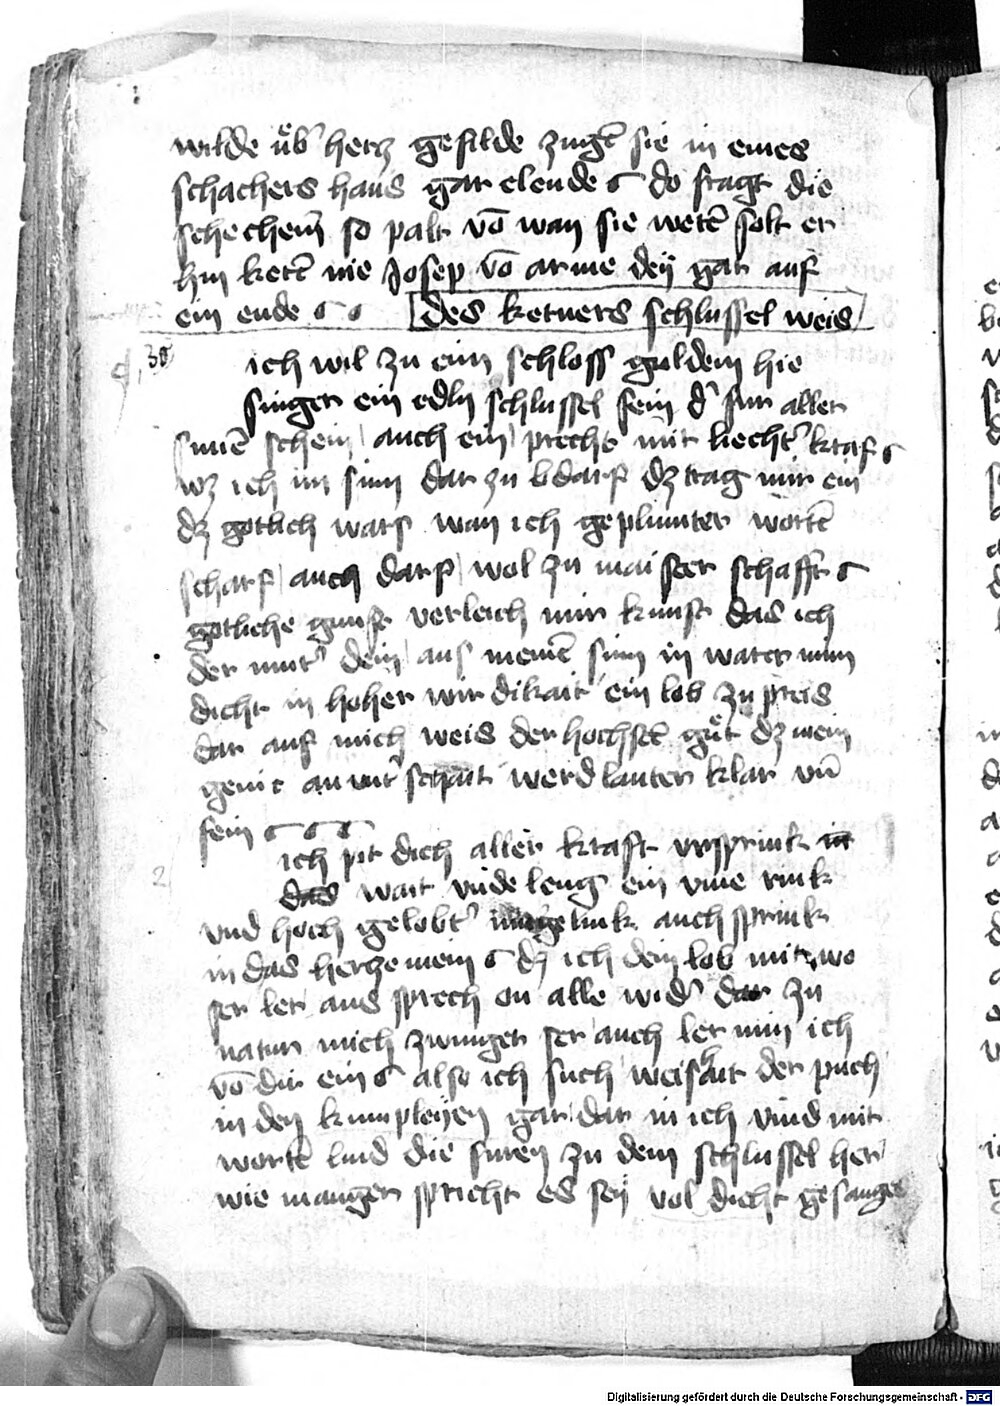 wilde üb͛ hertz gefilde zugt̄ sie in eines
schachers haus gar elende do fragt die
schecherin̄ so palt vō wan sie wetē solt er
hin kertē wie Josep vō arme dey gar auf
ein ende des ketners schlussel weis
30
ich wil zu eim schloss guldein hie
singen ein edln schlussel fein d͛ fur aller
sinnē schein auch ein precht mit liecht͛ kraft
wz ich im sinn dar zu bdarf dz trag mir ein
dz gotlich wars wan ich geplumter wortē
scharf auch darf wol zu maister schafft
gotliche gunst verleich mir kunst das ich
der mut͛ dein aus meinē sinn in water min
dicht in hoher wirdikait ein lob zu preis
dar auf mich weis der hochstē güt dz mein
gemt an unt͛ schait werd lauter klar vn̄
fein
2
ich pit dich aller kraft vrsprink
das wait vnde leng ein vme rink
vnd hoch gelobt͛ auch sprink
in das hertze mein dz ich dein lob mit wo
ser ler aus sprech on alle wid͛ dar zu
natur mich zwinget ser auch ler min ich
vō dir ein also ich such weishait der puch
in den kumpleyen gar dar in ich vind mit
wortē lind die furen zu dem schlussel her
wie manger spricht es sey vol dicht gesanges
Digitalisierung gefördert durch die Deutsche Forschungsgemeinschaft - DFG